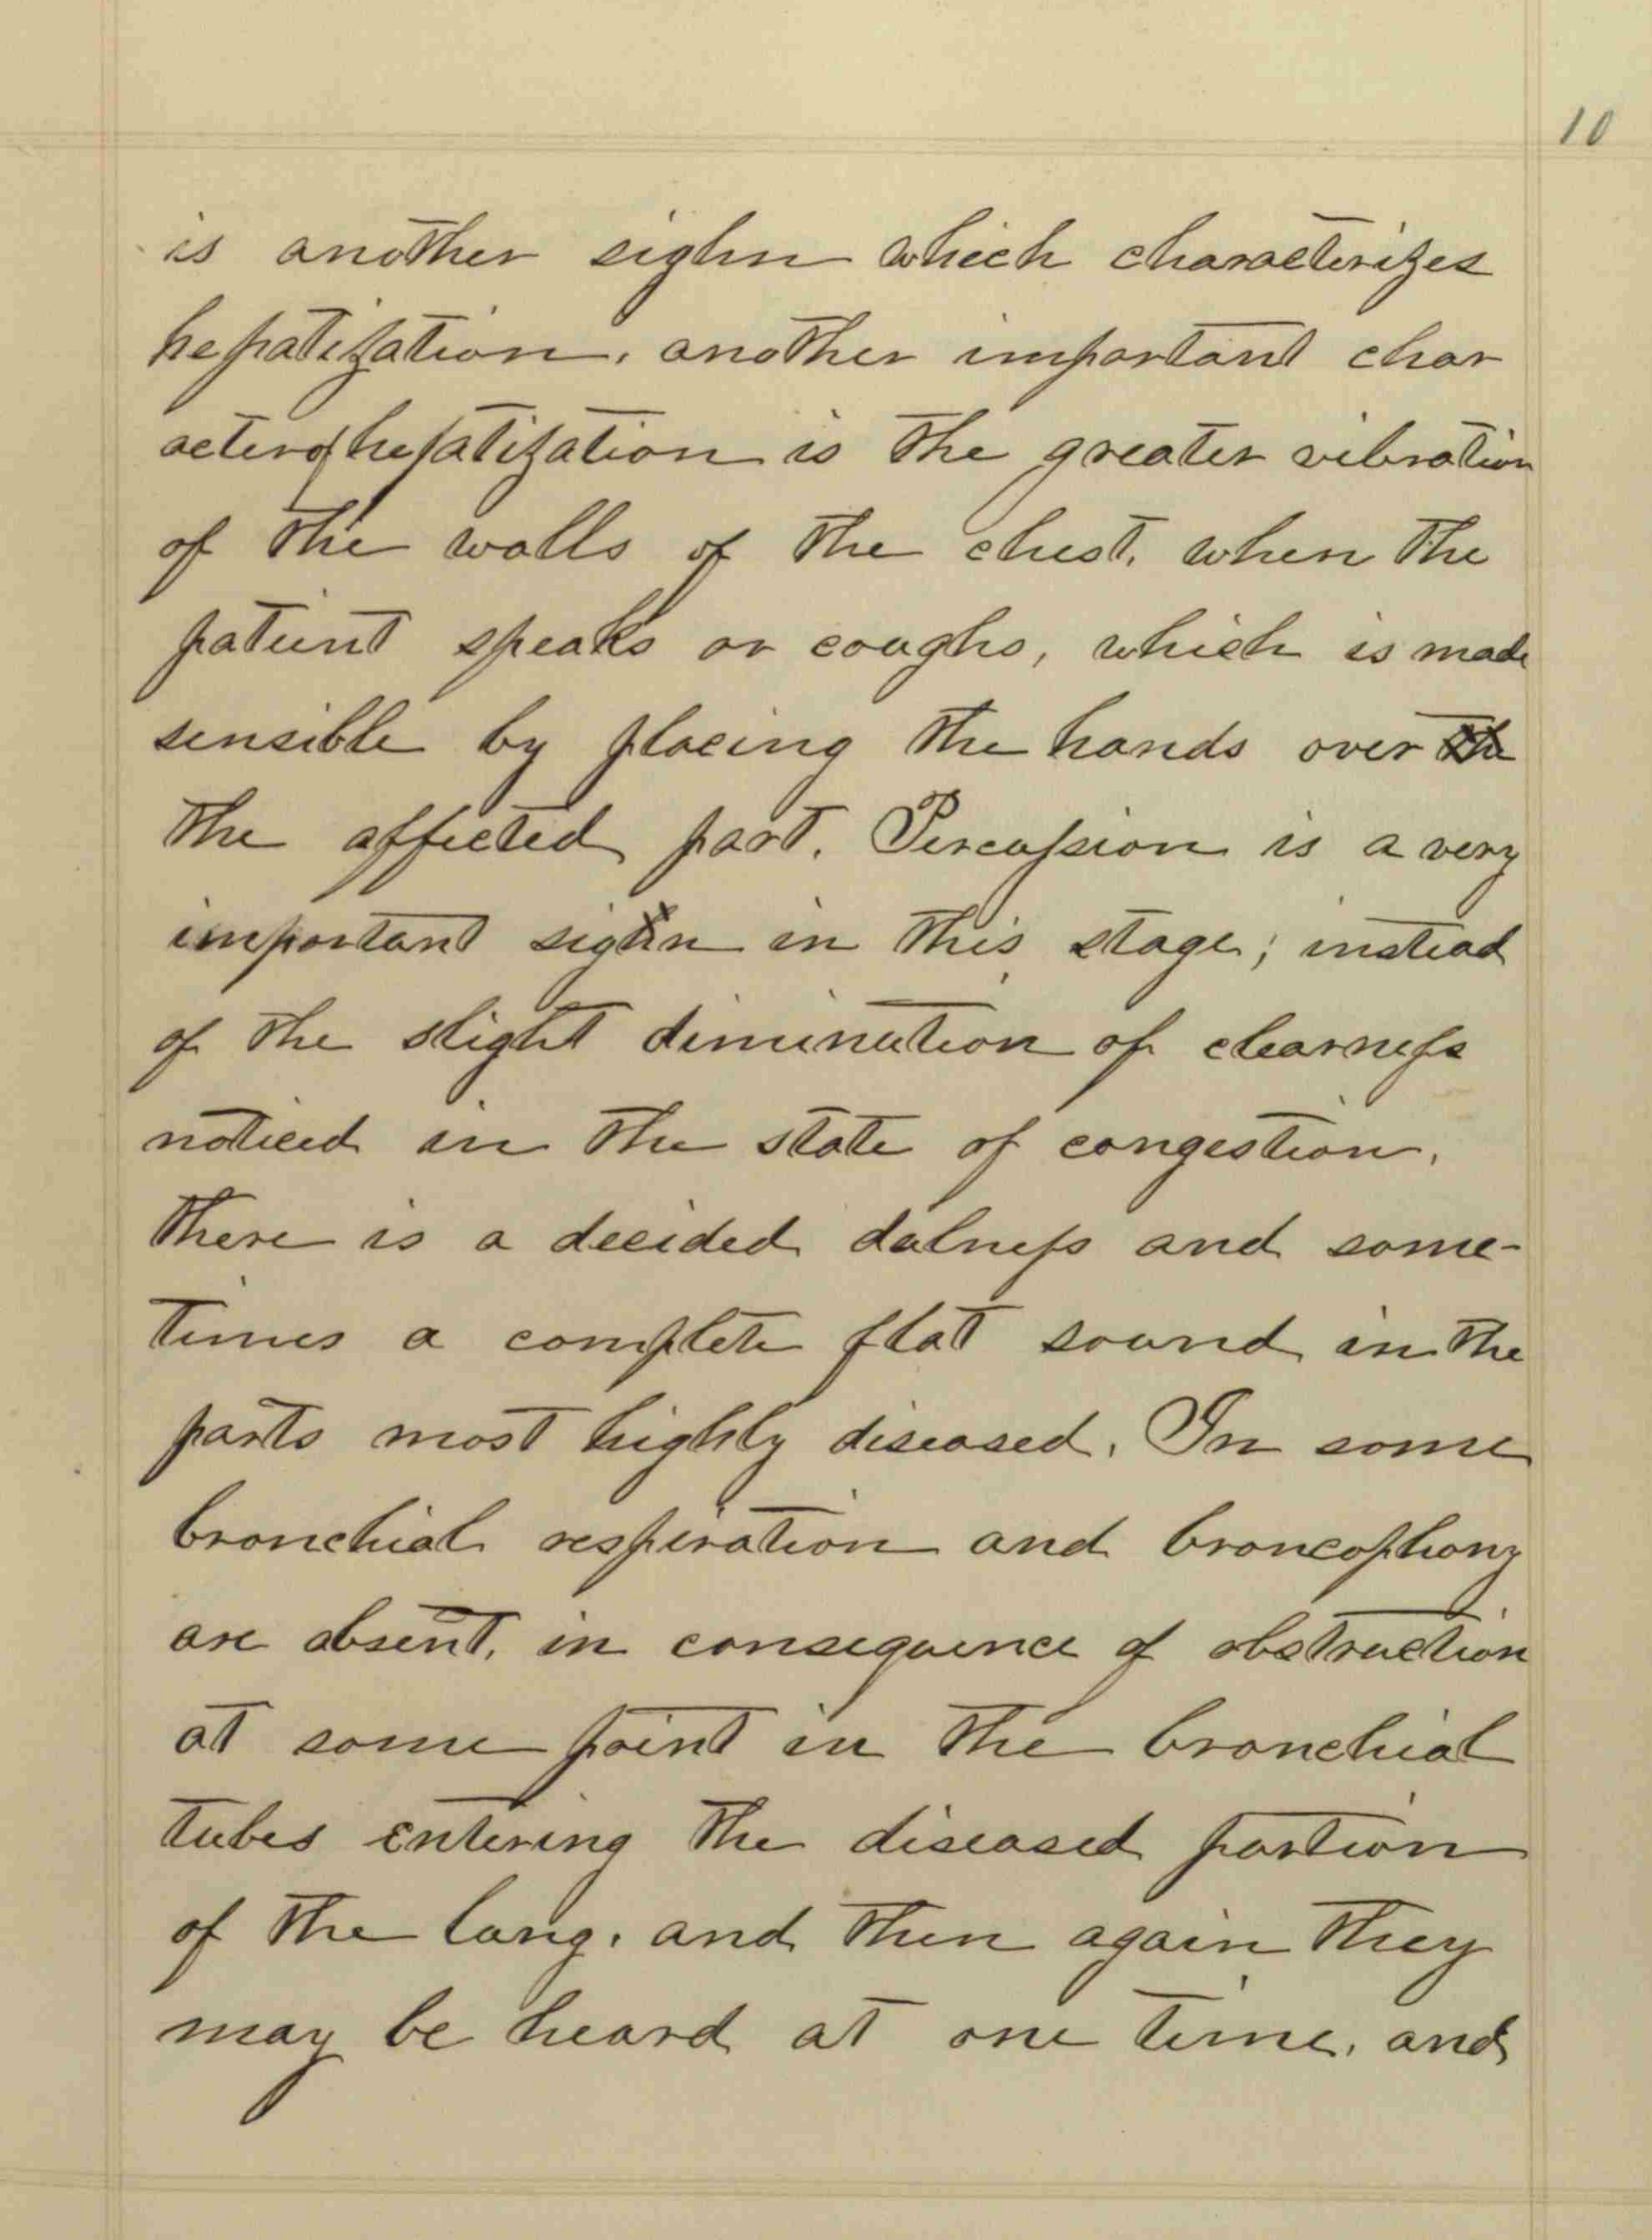 10
is another sighn which characterizes
hepatization, another important char
acter of hepatization is the greater vibration
of the walls of the chest, when the
patient speaks or coughs, which is made
sensible by placing the hands over the
the affected part. Percussion is a very
important sighn in this stage; instead
of the slight diminution of clearness
noticed in the state of congestion,
there is a decided dulness and some-
times a complete flat sound in the
parts most highly diseased. In some
bronchial respiration and broncophony
are absent, in consequence of obstruction
at some point in the bronchial
tubes entering the diseased portion
of the lung, and then again they
may be heard at one time, and